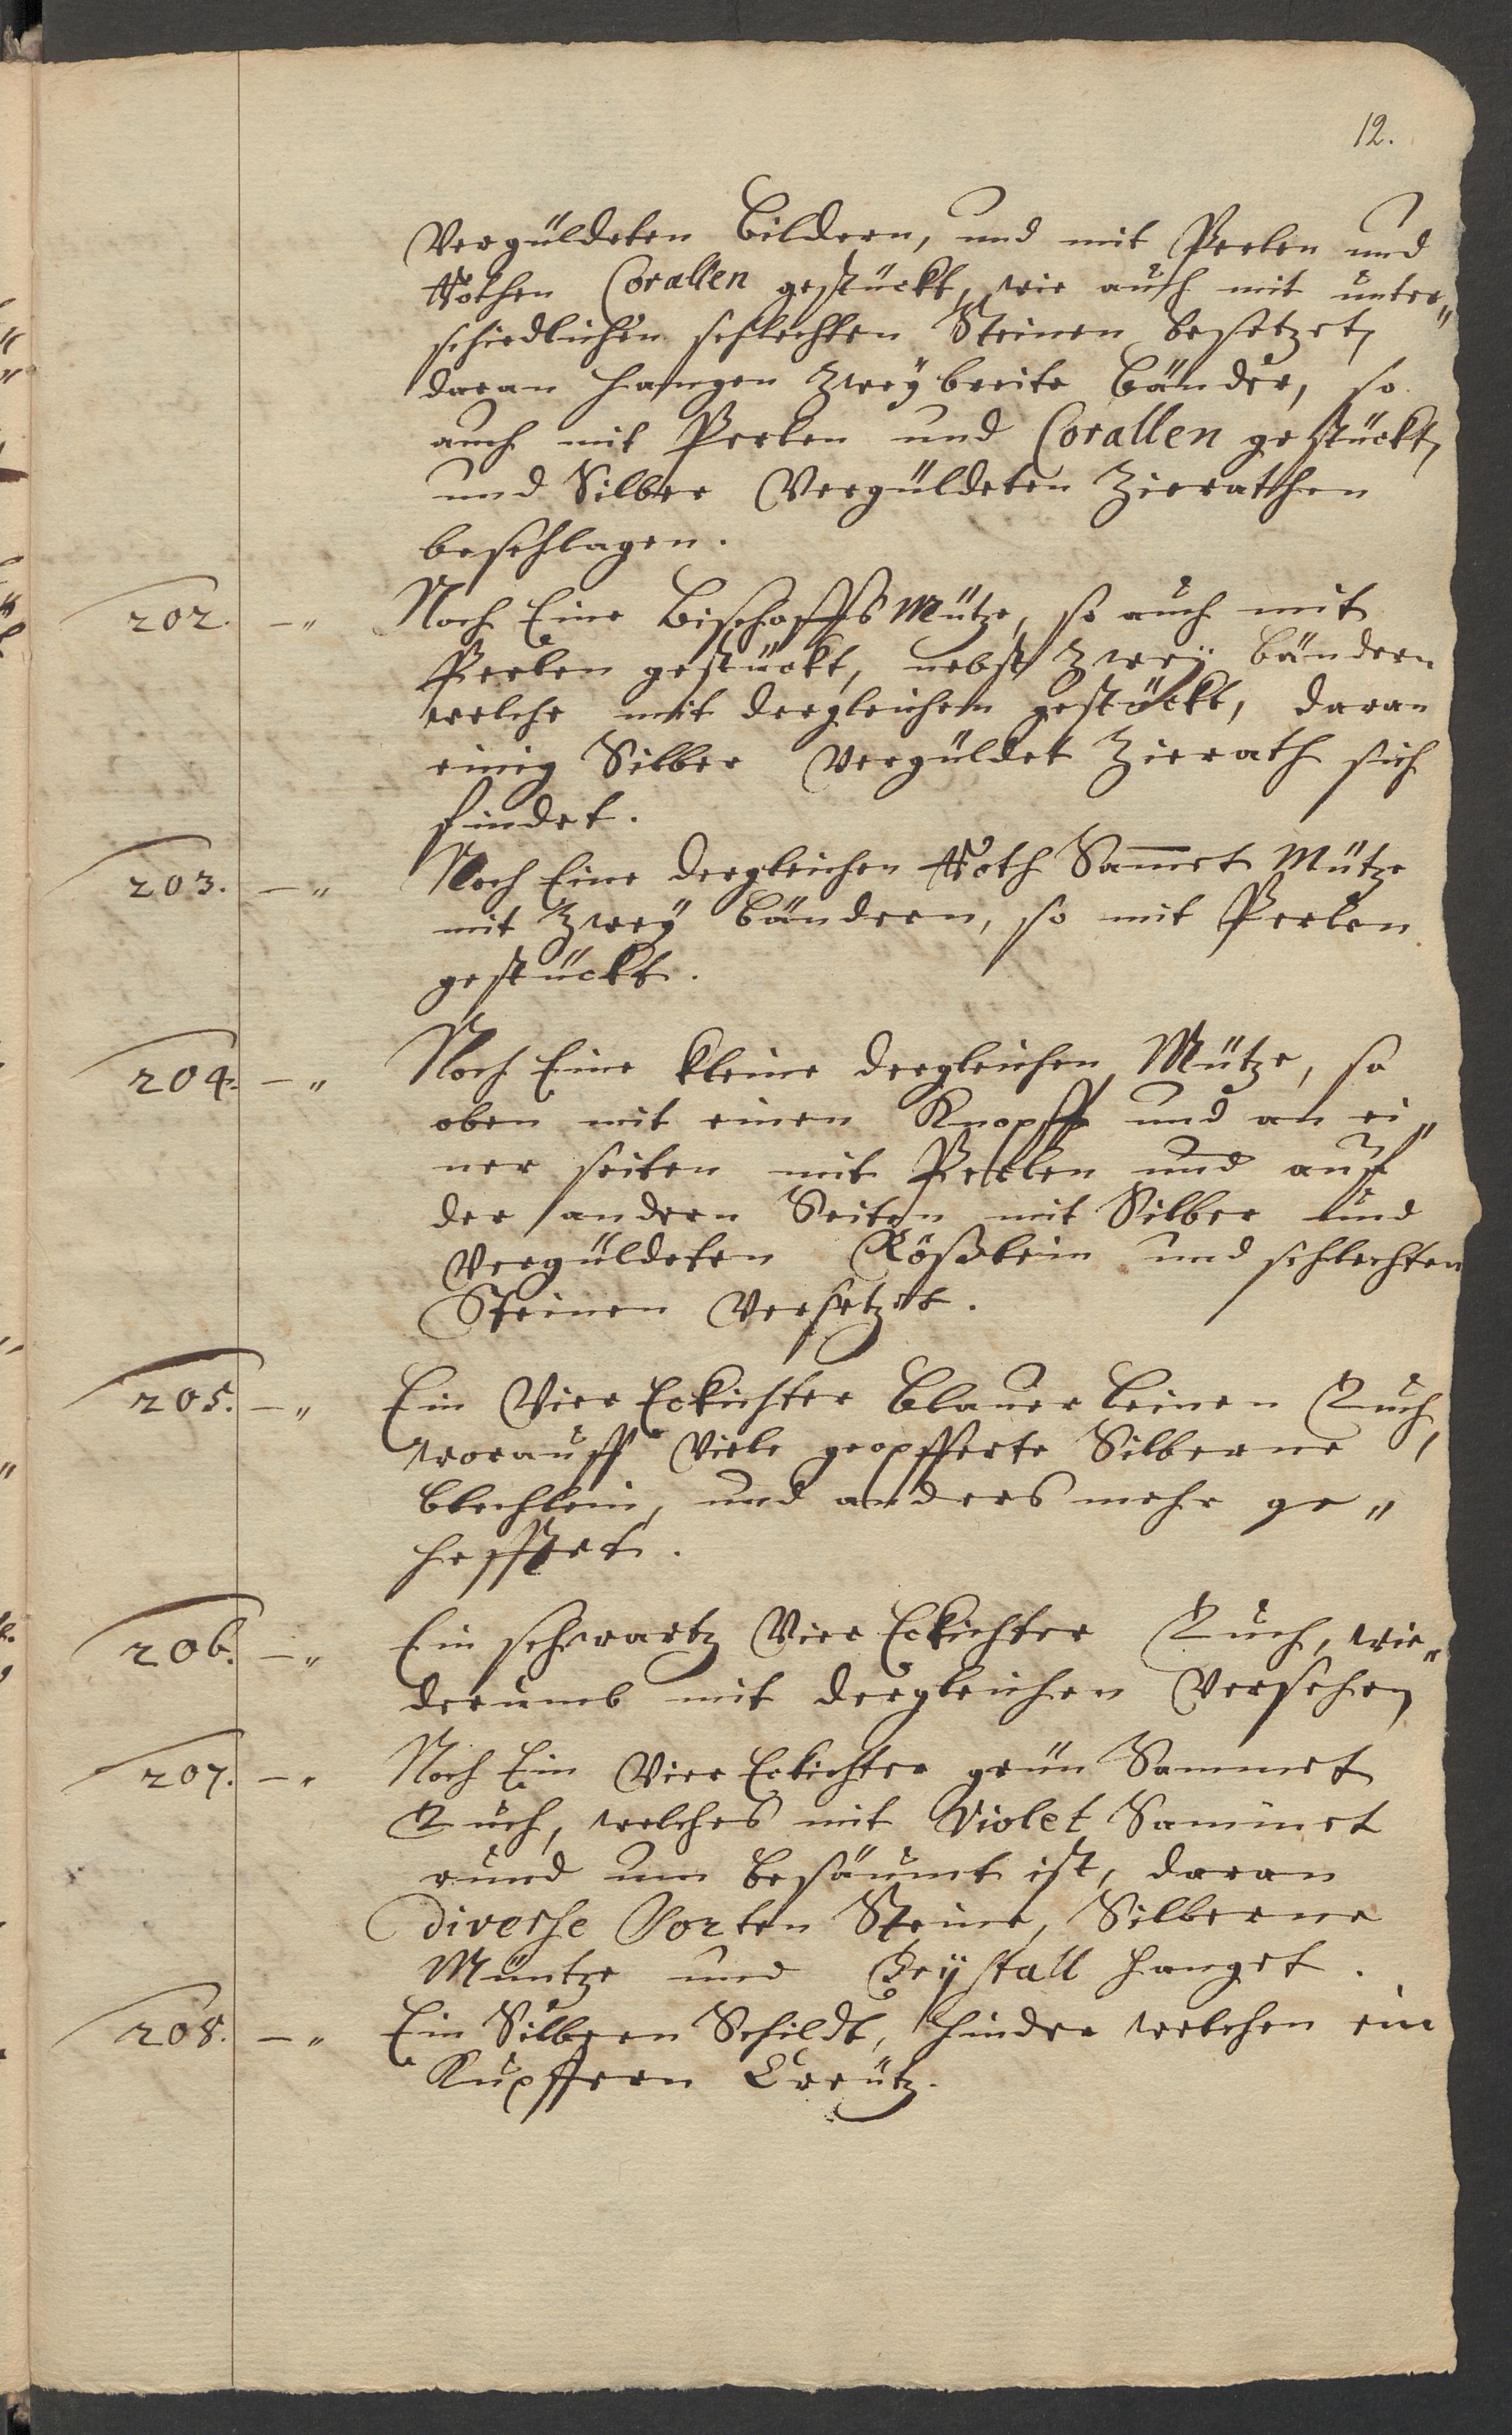 12.
Vergüldeten Bildern, und mit Perlen und
Rothen Corallen gestückt, wie auch mit unter„
schiedlichen schlechten Steinen besetzet,
daran hangen Zwey breite bänder, so
auch mit Perlen und Corallen gestückt,
und Silber Vergüldeten Zierathen
beschlagen.
202. – „ Noch Eine Bischoffs Mütze, so auch mit
Perlen gestückt, nebst Zweÿ bändern
welche mit dergleichen gestückt, daran
einig Silber Vergüldet Zierath sich
findet.
203. – „ Noch Eine dergleichen Roth Sam̅et Mütze
mit Zweÿ bändern, so mit Perlen
gestückt.
204. – „ Noch Eine kleine dergleichen Mütze, so
oben mit einen Knopff und an ei„
ner seiten mit Perlen und auf
der andern Seiten mit Silber und
Vergüldeten Rößlein und schlechten
Steinen Versetzet.
205. – „ Ein Vier Eckichter blauer leinen Tuch,
worauff Viele geopfferte Silberne
blechlein, und anders mehr ge„
hefftet.
206. – „ Ein schwartz Vier Eckichter Tuch, wie„
derumb mit dergleichen Versehen
207. – „ Noch Ein Vier Eckichter grün Sammet
Tuch, welches mit Violet Sammet
rund um besäumt ist, daran
diverse Sorten Steine, Silberne
Müntze und Crystall hanget.
208. – „ Ein Silbern Schildt, hinder welchen ein
Kupffern Creütz.